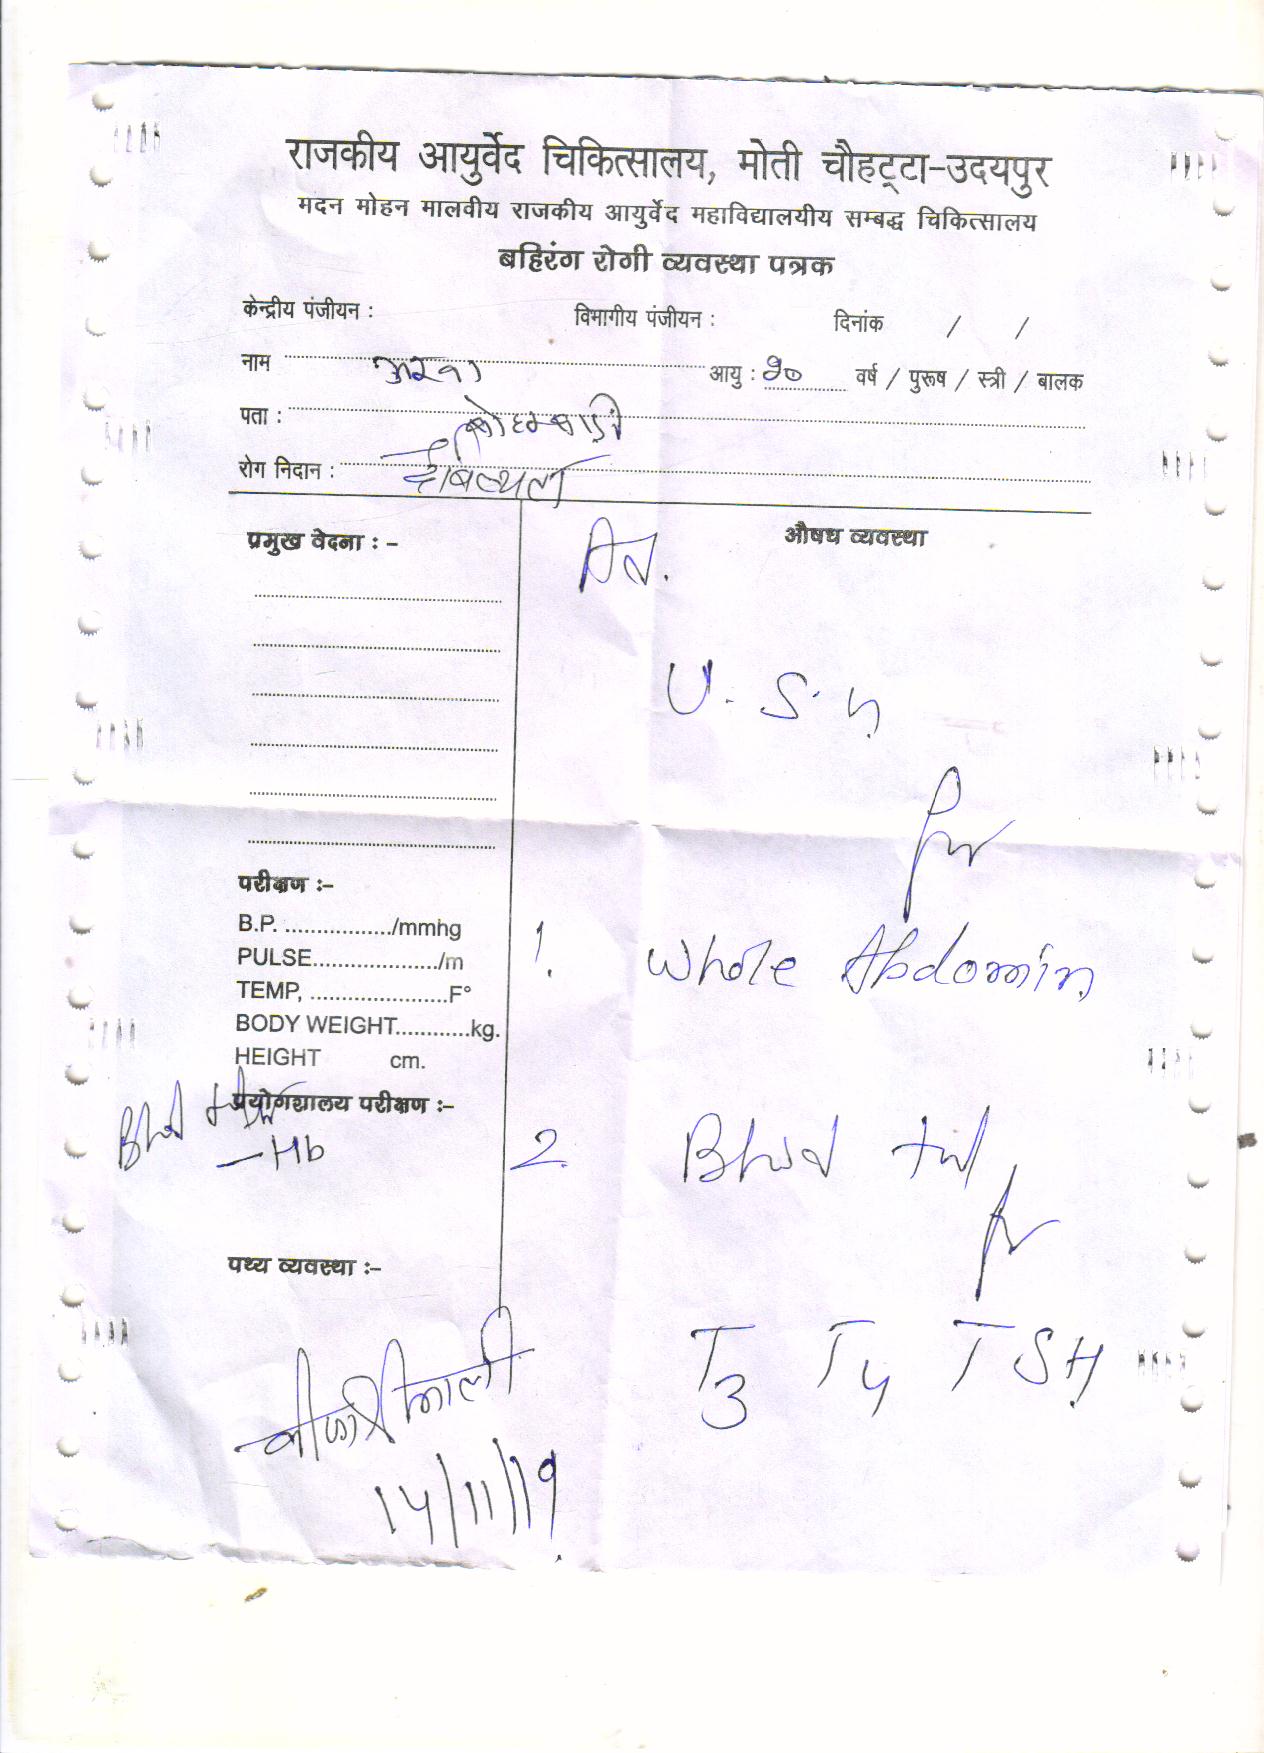 राजकीय आयुर्वेद चिकित्सालय, मोती चौहट्टा-उदयपुर
मदन मोहन मालवीय राजकीय आयुर्वेद महाविद्यालयीय सम्बद्ध चिकित्सालय
बहिरंग रोगी व्यवस्था पत्रक
केन्द्रीय पंजीयन : विभागीय पंजीयन : दिनांक / /
नाम आयु : वर्ष / पुरूष / स्त्री / बालक
पता :
रोग निदान :
प्रमुख वेदना : - औषध व्यवस्था
U.S.G.
for
परीक्षण :-
B.P. ................../mmhg
PULSE..................../m
TEMP, ......................F°
BODY WEIGHT............kg.
HEIGHT cm.
1. Whole Abdomin
प्रयोगशालय परीक्षण :-
Blood
-Hb
2. Blood
for
पथ्य व्यवस्था :-
T3 T4 TSH
14/11/19